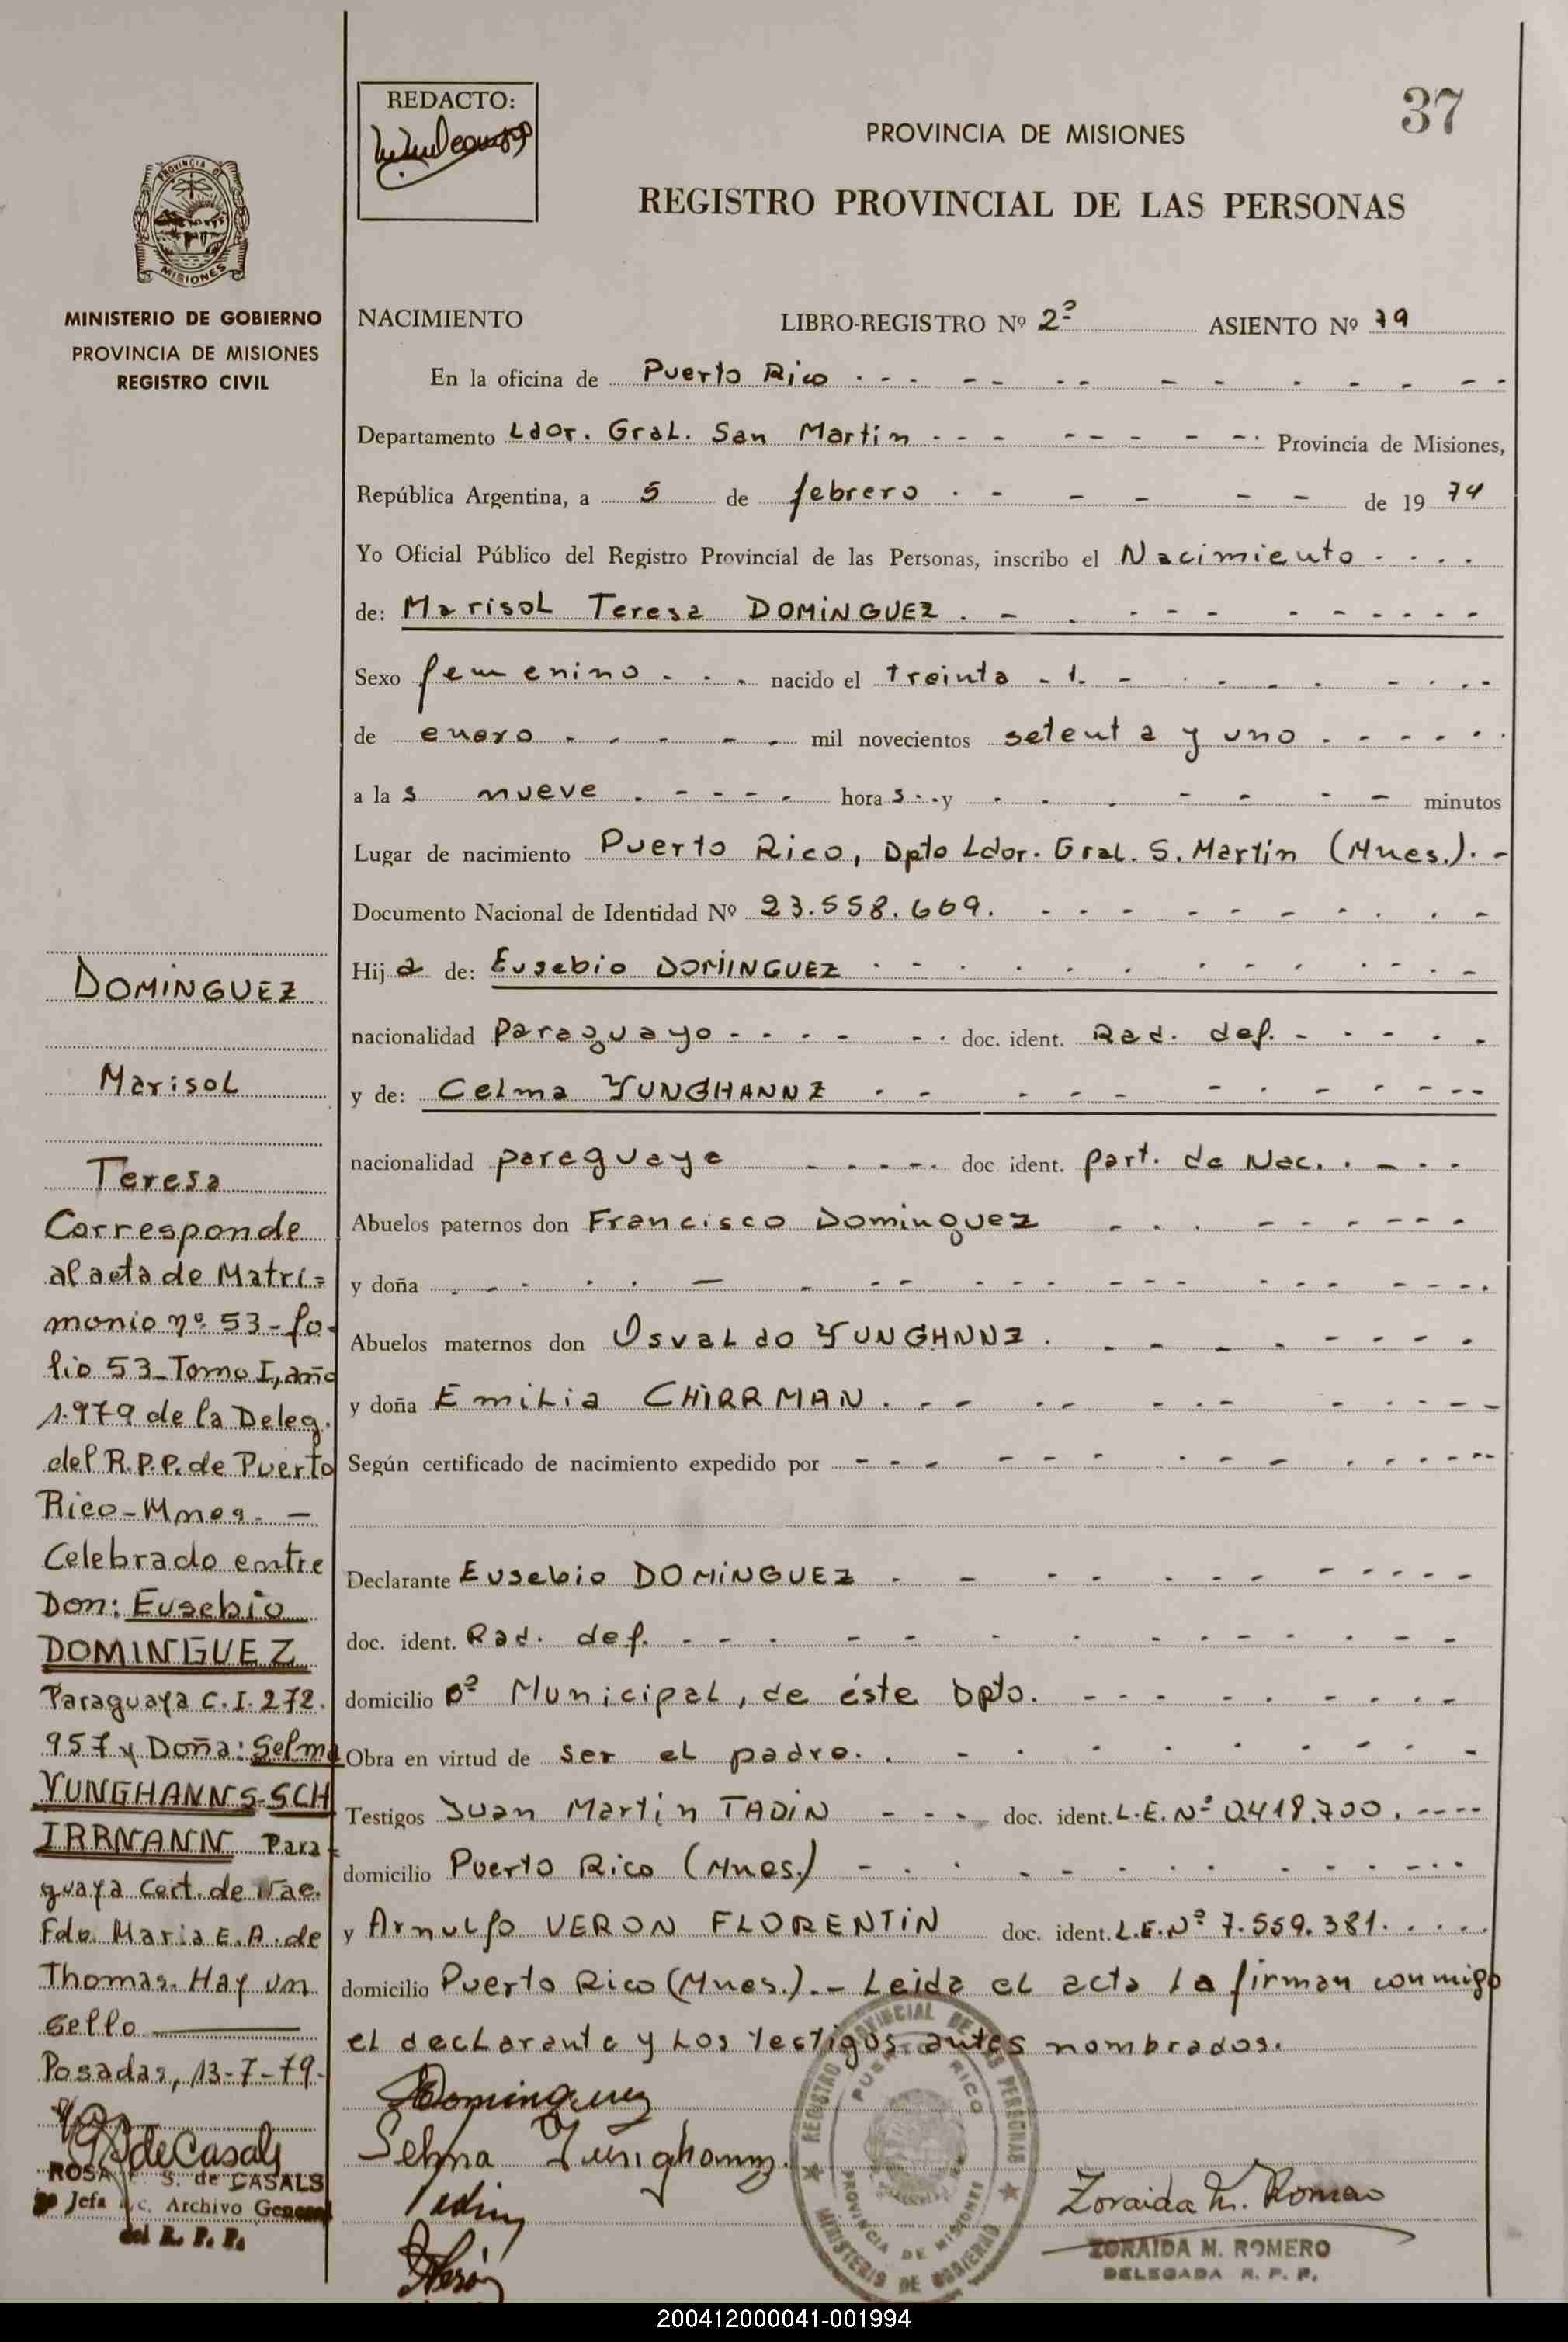 37
REDACTO:
PROVINCIA DE MISIONES
REGISTRO PROVINCIAL DE LAS PERSONAS
PROVINCIA DE
MISIONES
MINISTERIO DE GOBIERNO
PROVINCIA DE MISIONES
REGISTRO CIVIL
NACIMIENTO LIBRO-REGISTRO Nº 2º ASIENTO Nº 79
En la oficina de Puerto Rico
Departamento Ldor. Gral. San Martin Provincia de Misiones,
República Argentina, a 5 de febrero de 19 74
Yo Oficial Público del Registro Provincial de las Personas, inscribo el Nacimiento
de: Marisol Teresa DOMINGUEZ
Sexo femenino nacido el treinta
de enero mil novecientos setenta y uno
a la s nueve hora s y minutos
Lugar de nacimiento Puerto Rico, Dpto Ldor. Gral. S. Martin (Mnes.).
Documento Nacional de Identidad Nº 23.558.609.
Hij a de: Eusebio DOMINGUEZ
nacionalidad paraguayo doc. ident. Rad. def.
y de: Celma YUNGHANNZ
nacionalidad paraguaya doc ident. part. de Nac.
Abuelos paternos don Francisco Dominguez
y doña
Abuelos maternos don Osvaldo YUNGHNNZ
y doña Emilia CHIRRMAN
Según certificado de nacimiento expedido por
Declarante Eusebio DOMINGUEZ
doc. ident. Rad. def.
domicilio Bº Municipal, de éste Dpto.
Obra en virtud de ser el padre.
Testigos Juan Martin TADIN doc. ident. L.E. Nº 0418.700.
domicilio Puerto Rico (Mnes.)
y Arnulfo VERON FLORENTIN doc. ident. L.E. Nº 7.559.381.
domicilio Puerto Rico (Mnes.).- Leida el acta la firman conmigo
el declarante y los testigos antes nombrados.
DOMINGUEZ
Marisol
Teresa
Corresponde
al acta de Matri=
monio nº 53-fo-
lio 53-Tomo I, año
1.979 de la Deleg.
del R.P.P. de Puerto
Rico-Mnes. —
Celebrado entre
Don: Eusebio
DOMINGUEZ
Paraguaya C.I. 272.
957 y Doña: Selma
YUNGHANNS-SCH
IRRNANN Para
guaya Cert. de Nac.
Fdo. Maria E.A. de
Thomas. Hay un
sello
Posadas, 13-7-79-
de Casals
ROSA S. de CASALS
Jefa Archivo General
del R. P. P.
Dominguez
Selma Yunghannz.
Tadin
REGISTRO PROVINCIAL DE LAS PERSONAS
PUERTO RICO
PROVINCIA DE MISIONES
MINISTERIO DE GOBIERNO
Zoraida M. Romero
ZORAIDA M. ROMERO
DELEGADA R. P. P.
200412000041-001994